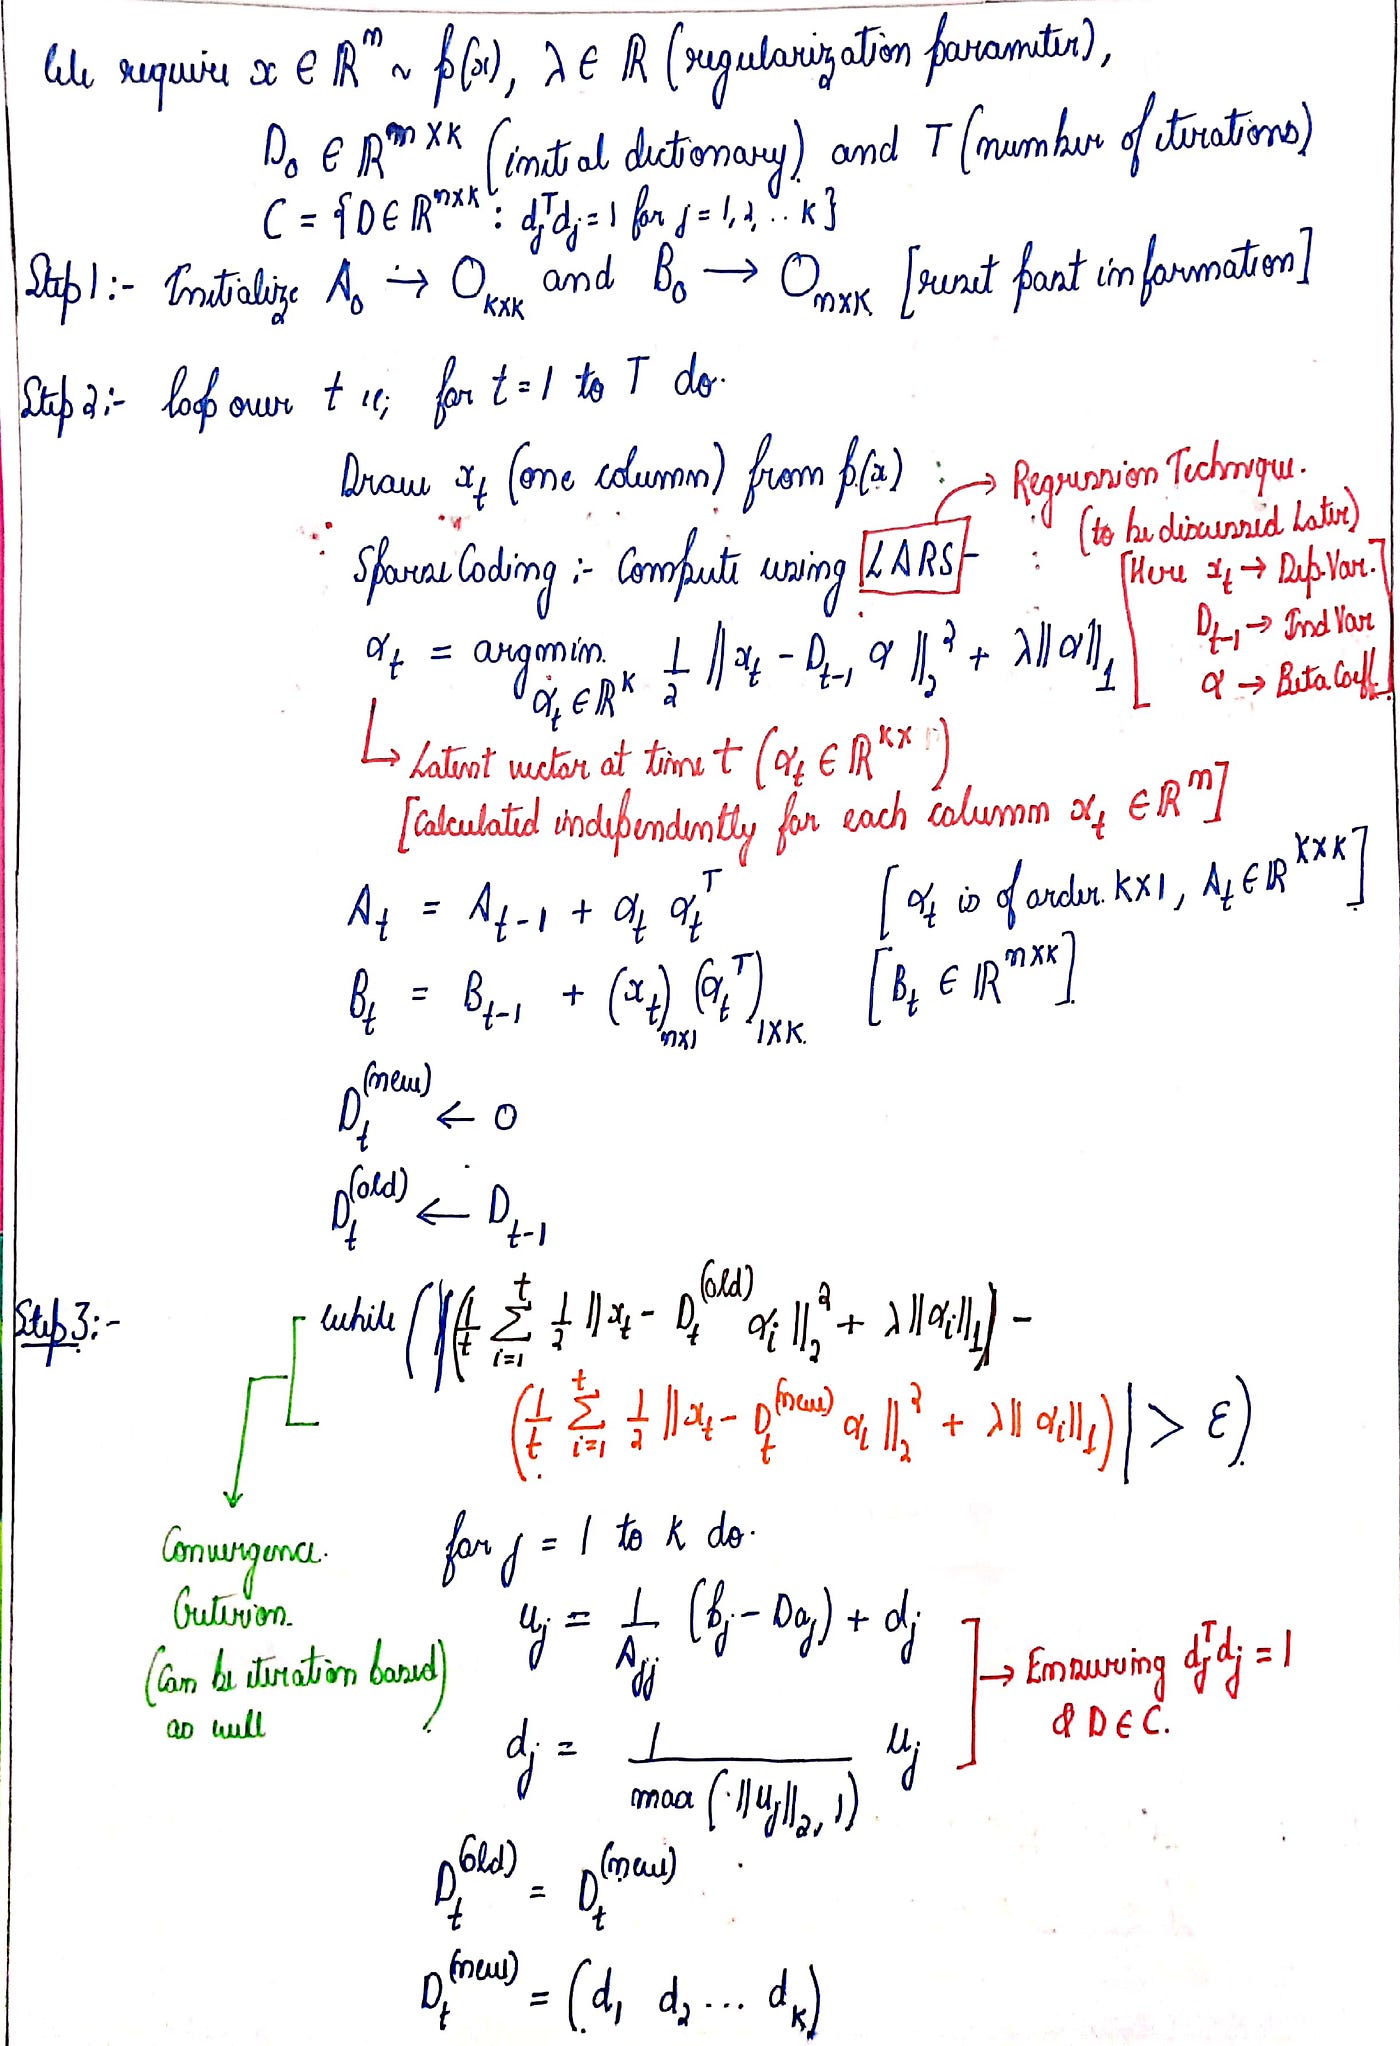 We require x ∈ ℝⁿ ~ p(x), λ ∈ ℝ (regularization parameter),
D₀ ∈ ℝ^(n×K) (initial dictionary) and T (number of iterations)
C = {D ∈ ℝ^(n×K) : dⱼᵀdⱼ = 1 for j = 1, 2, .. K}
Step 1:- Initialize A₀ → O_(K×K) and B₀ → O_(n×K) [reset past information]
Step 2:- loop over t ie; for t = 1 to T do.
Draw x_t (one column) from p(x) :
→ Regression Technique.
(to be discussed Later)
Sparse Coding :- Compute using LARS -
[Here x_t → Dep.Var.
D_(t-1) → Ind Var
α → Beta Coeff.]
α_t = argmin_(α_t ∈ ℝ^K) 1/2 ||x_t - D_(t-1) α||₂² + λ||α||₁
↳ Latent vector at time t (α_t ∈ ℝ^(K×1))
[Calculated independently for each column x_t ∈ ℝⁿ]
A_t = A_(t-1) + α_t α_tᵀ [α_t is of order K×1, A_t ∈ ℝ^(K×K)]
B_t = B_(t-1) + (x_t)_(n×1) (α_tᵀ)_(1×K) [B_t ∈ ℝ^(n×K)]
D_t^(new) ← 0
D_t^(old) ← D_(t-1)
Step 3:- while (|(1/t Σ_(i=1)^t 1/2 ||x_t - D_t^(old) α_i||₂² + λ||α_i||₁) -
(1/t Σ_(i=1)^t 1/2 ||x_t - D_t^(new) α_i||₂² + λ||α_i||₁)| > ε)
Convergence
Criterion
(Can be iteration based)
as well
for j = 1 to K do.
u_j = 1/A_jj (b_j - Da_j) + d_j
→ Ensuring d_jᵀd_j = 1
& D ∈ C.
d_j = 1/max(||u_j||₂, 1) u_j
D_t^(old) = D_t^(new)
D_t^(new) = (d₁ d₂ ... d_K)